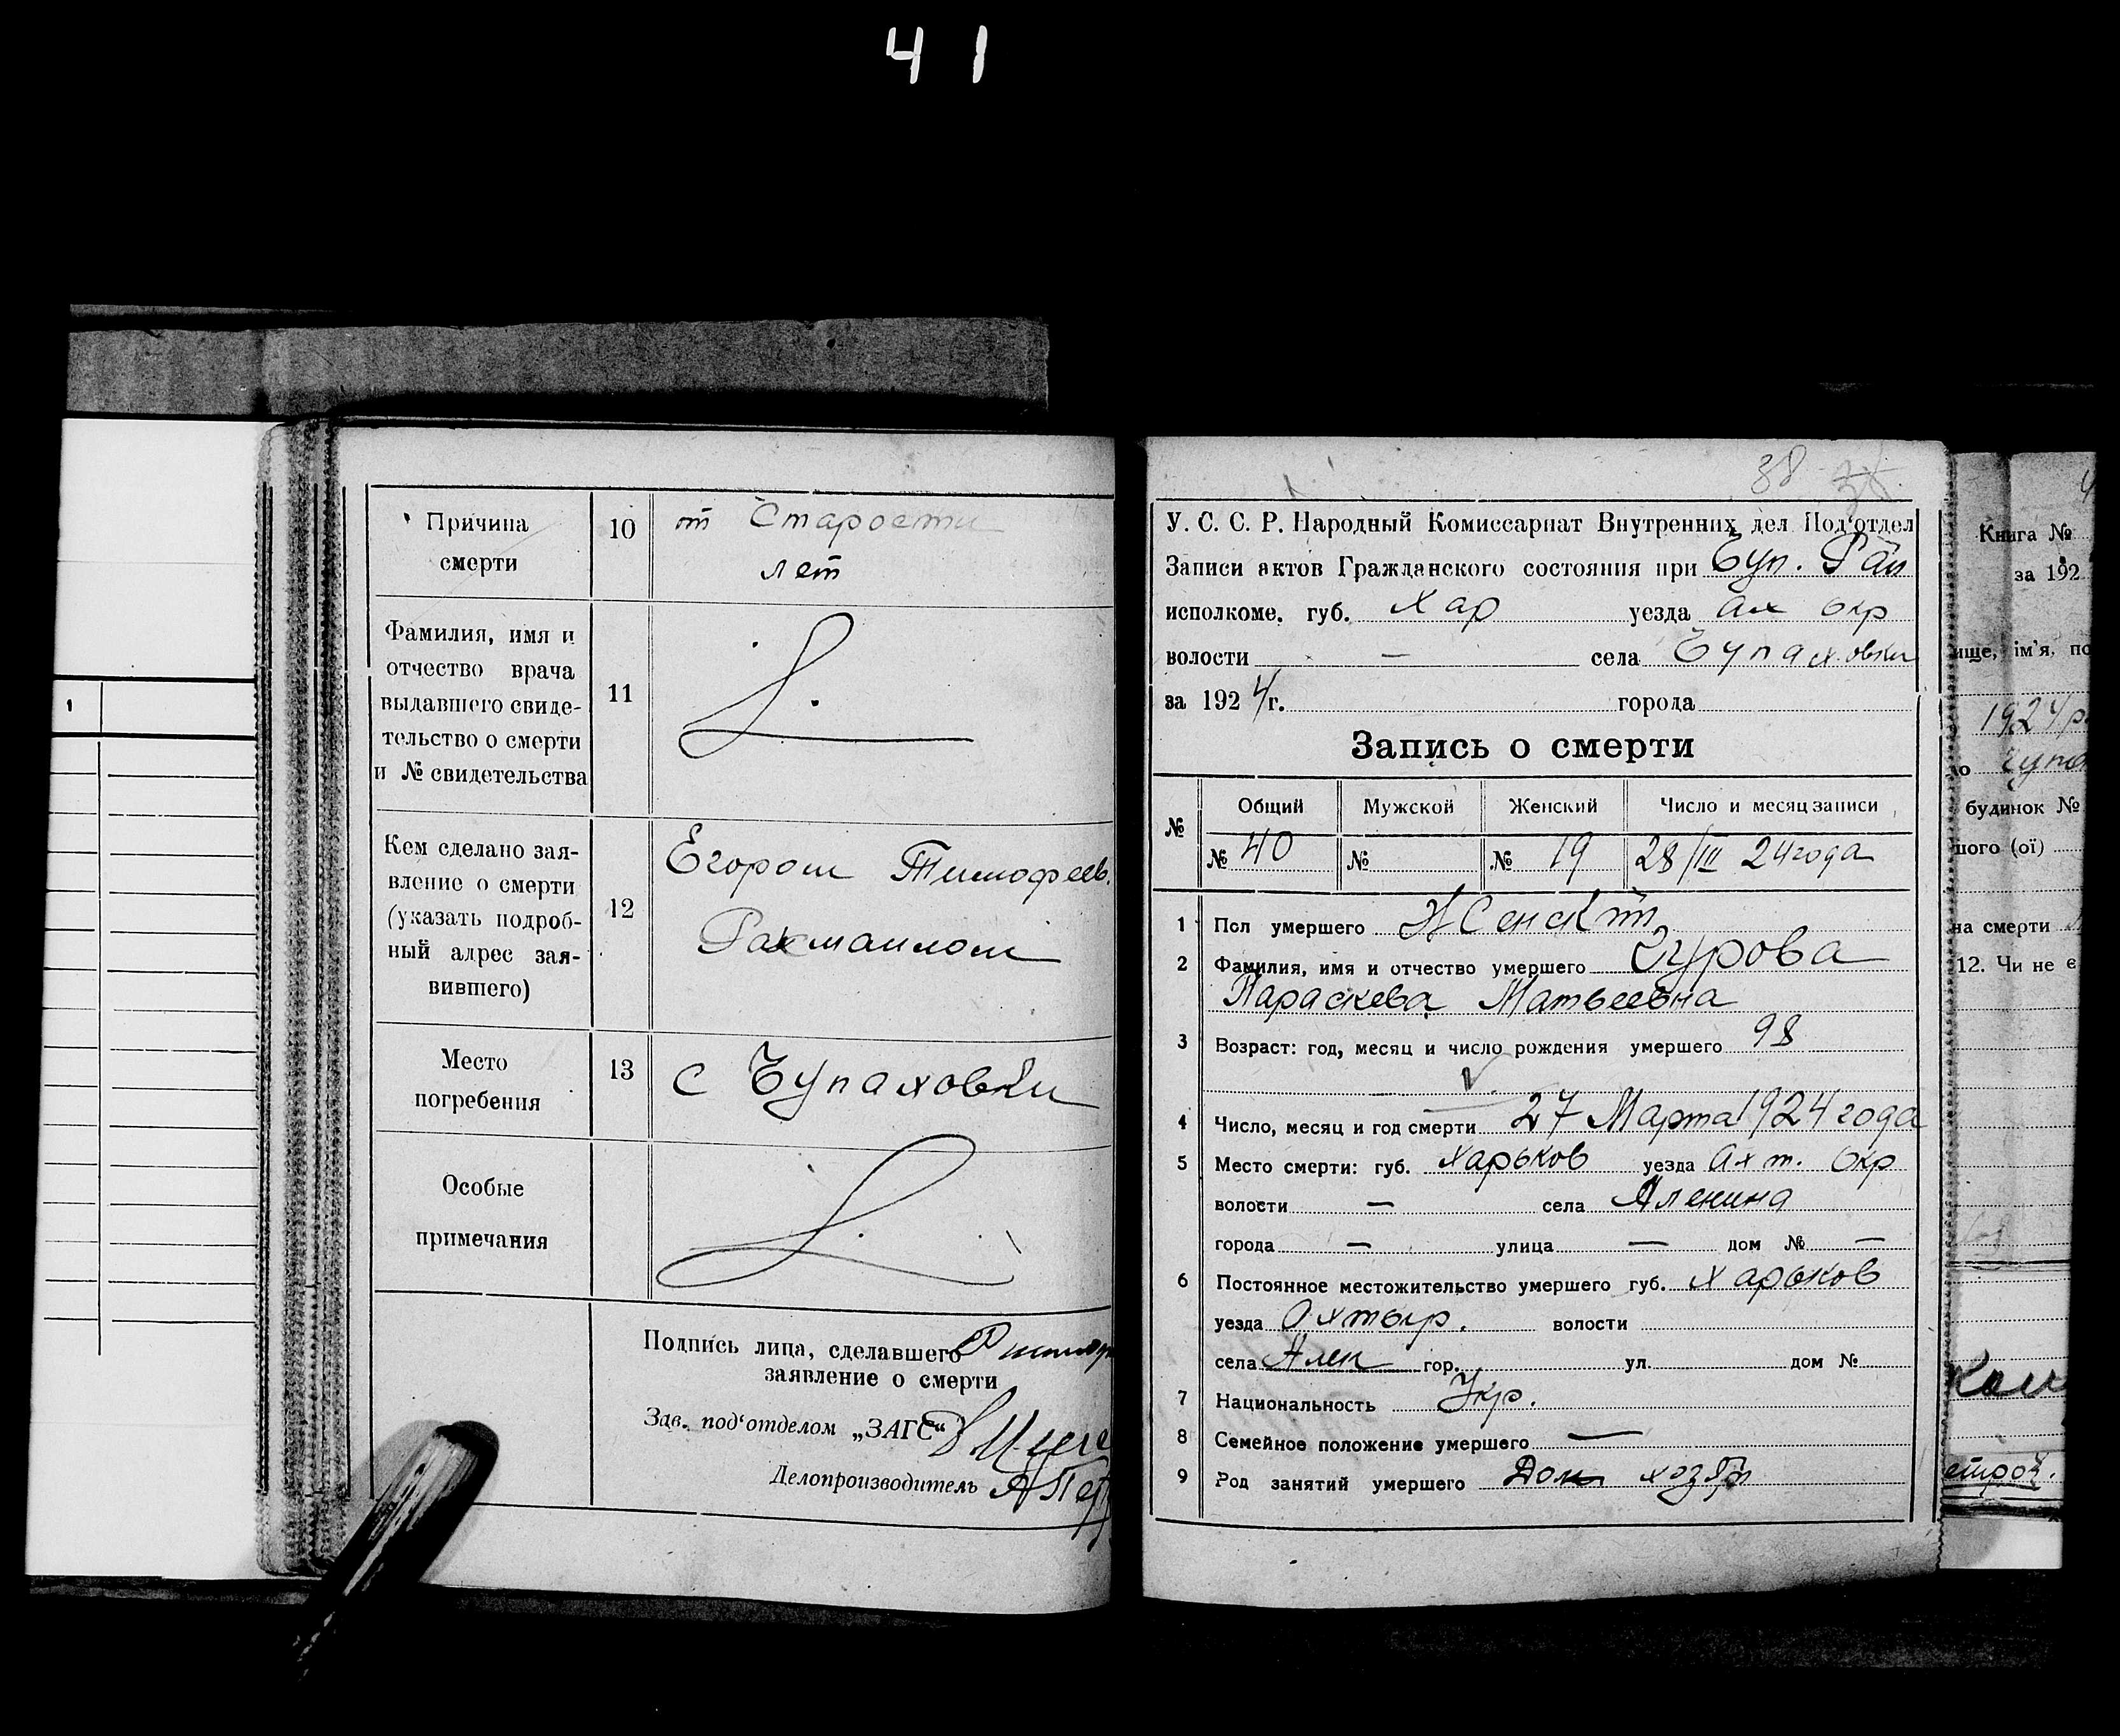 41
Причина
смерти
10
от Старости
лет
Фамилия, имя и
отчество врача
выдавшего свиде-
тельство о смерти
и № свидетельства
11
Кем сделано зая-
вление о смерти
(указать подроб-
ный адрес зая-
вившего)
12
Егором Тимофеев.
Место
погребения
13
с Чупаховки
Особые
примечания
Подпись лица, сделавшего
заявление о смерти
Зав. под‘отделом „ЗАГС“
Делопроизводитель
38
У. С. С. Р. Народный Комиссариат Внутренних дел Под‘отдел
Записи актов Гражданского состояния при Чуп. Рай
исполкоме. губ. Хар уезда Ах окр
волости — села Чупаховки
за 1924 г. города
Запись о смерти
№ Общий Мужской Женский Число и месяц записи
№ 40 № № 19 28/III 24 года
1 Пол умершего Женск
2 Фамилия, имя и отчество умершего Гурова
Параскева Матвеевна
3 Возраст: год, месяц и число рождения умершего 98
4 Число, месяц и год смерти 27 Марта 1924 года
5 Место смерти: губ. Харьков уезда Ахт. Окр
волости — села Аленина
города — улица — дом № —
6 Постоянное местожительство умершего губ. Харьков
уезда Ахтыр. волости
села Ален гор. ул. дом №
7 Национальность Укр.
8 Семейное положение умершего —
9 Род занятий умершего Дом хозяй
Книга №
за 192
ім'я, по
1924 р.
будинок №
на смерти
12. Чи не є